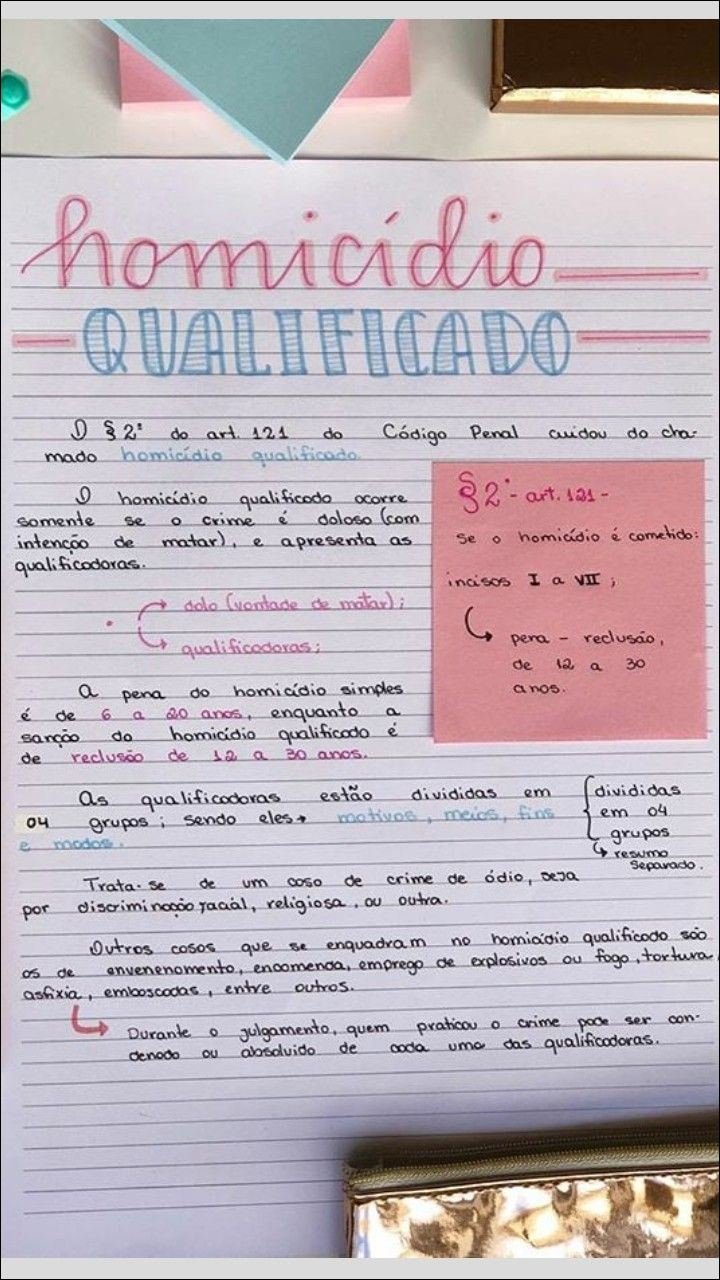 homicídio
QUALIFICADO
O § 2º do art. 121 do Código Penal cuidou do cha-
mado homicídio qualificado.
O homicídio qualificado ocorre
somente se o crime é doloso (com
intenção de matar), e apresenta as
qualificadoras.
dolo (vontade de matar);
qualificadoras;
§ 2º - art. 121 -
Se o homicídio é cometido:
incisos I a VII ;
pena - reclusão,
de 12 a 30
anos.
A pena do homicídio simples
é de 6 a 20 anos, enquanto a
sanção do homicídio qualificado é
de reclusão de 12 a 30 anos.
As qualificadoras estão divididas em
04 grupos ; sendo eles → motivos, meios, fins
e modos.
divididas
em 04
grupos
resumo
separado.
Trata-se de um caso de crime de ódio, seja
por discriminação racial, religiosa, ou outra.
Outros casos que se enquadram no homicídio qualificado são
os de envenenamento, encomenda, emprego de explosivos ou fogo, tortura,
asfixia, emboscadas, entre outros.
Durante o julgamento, quem praticou o crime pode ser con-
denado ou absolvido de cada uma das qualificadoras.